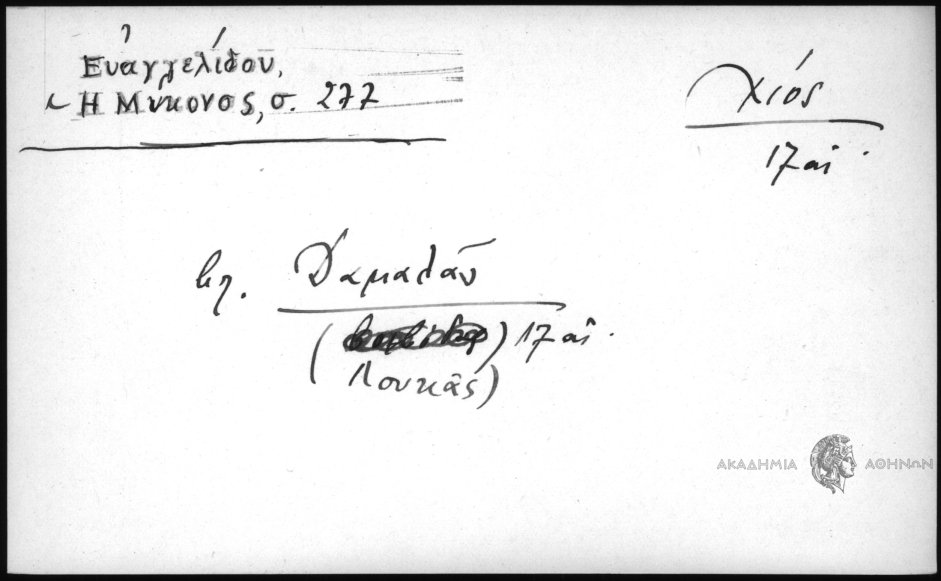 Εὐαγγελίδου,
Ἡ Μύκονος, σ. 277
Χιός
17 αἰ.
βλ. Δαμαλᾶν
( ) 17 αἰ.
Λουκᾶς)
ΑΚΑΔΗΜΙΑ ΑΘΗΝΩΝ